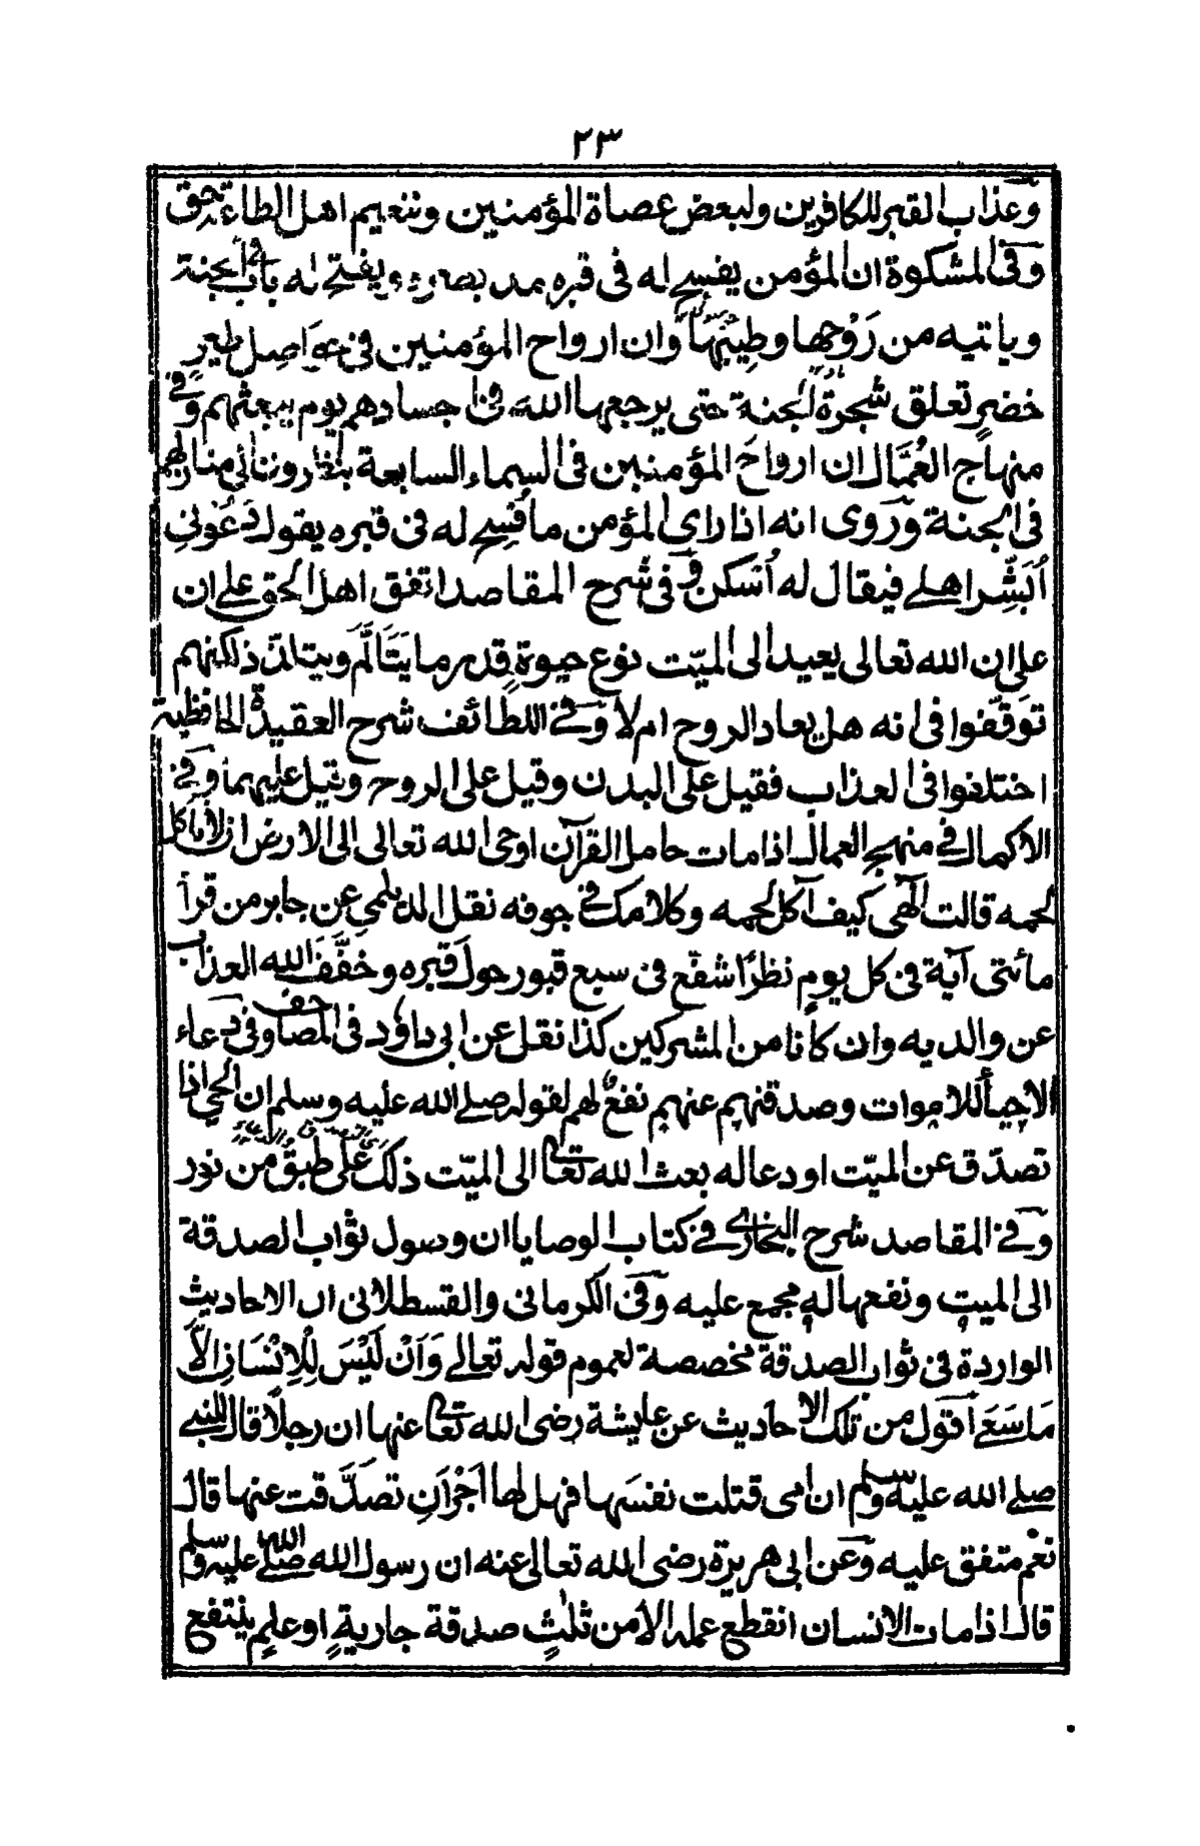 ٢٣
وعذاب القبر للكافرين ولبعض عصاة المؤمنين وتنعيم اهل الطاعة حق
وفى المشكوة ان المؤمن يفسح له فى قبره مد بصره ويفتح له باب الجنة
وياتيه من رَوْحها وطِيبها وان ارواح المؤمنين فى حواصل طيرٍ
خضرٍ تعلق شجرة الجنة حتى يرجعها الله فى اجسادهم يوم يبعثهم وفى
منهاج العُمَّال ان ارواحَ المؤمنين فى السماء السابعة ينظرون الى منازلهم
فى الجنة وروى انه اذا راى المؤمن ما فُسِح له فى قبره يقول دَعُونِى
اُبَشِّر اهلى فيقال له اُسكن وفى شرح المقاصد اتفق اهل الحق على ان
على ان الله تعالى يعيد الى الميّت نوع حيوةٍ قدر ما يَتَاَلَّمَ ويتلذّذ لكنهم
توقّفوا فى انه هل يعاد الروح ام لا وفى اللطائف شرح العقيدة الحافظية
اختلفوا فى العذاب فقيل على البدن وقيل على الروح وقيل عليهما وفى
الاكمال فى منهج العمال اذا مات حامل القرآن اوحى الله تعالى الى الارض ان لا تأكل
لحمه قالت الٰهى كيف آكل لحمه وكلامك فى جوفه نقل الديلمى عن جابر من قرأ
مائتى آية فى كل يومٍ نظرًا شفّع فى سبع قبور حول قبره وخفَّفَ الله العذاب
عن والديه وان كانا من المشركين كذا نقل عن ابى داؤد فى المصاحف وفى دعاء
الاحياء للاموات وصدقتهم عنهم نفعٌ لهم لقوله صلى الله عليه وسلم ان الحى اذا
تصدّق عن الميّت او دعا له بعث الله تعالى الى الميّت ذلك على طبقٍ من نور
وفى المقاصد شرح البخارى فى كتاب الوصايا ان وصول ثواب الصدقة
الى الميت ونفعها له مجمع عليه وفى الكرمانى والقسطلانى ان الاحاديث
الواردة فى ثواب الصدقة مخصصة لعموم قوله تعالى وَاَنْ لَيْسَ لِلْاِنْسَانِ اِلَّا
مَا سَعَى اقول من تلك الاحاديث عن عايشة رضى الله تعالى عنها ان رجلاً قال للنبى
صلى الله عليه وسلم ان امى قتلت نفسَها فهل لها اَجْرٌ اَنِ تصدَّقت عنها قال
نعم متفق عليه وعن ابى هريرة رضى الله تعالى عنه ان رسول الله صلى الله عليه وسلم
قال اذا مات الانسان انقطع عمله الا من ثلٰثٍ صدقة جاريةٍ او علمٍ ينتفع